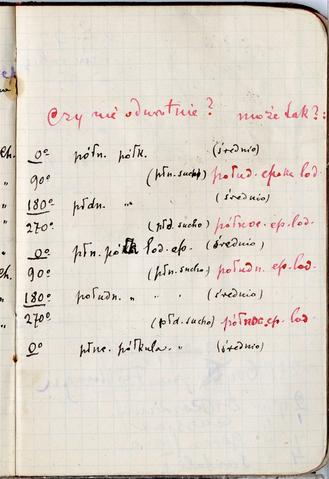 Czy nie odwrotnie? może tak?:
ch. 0° półn. półk. (średnio)
" 90° (płn. sucho) połud. epoka lod.
" 180° płdn. " (średnio)
" 270° (płd. sucho) północ. ep. lod.
" 0° płn. półk. lod. ep. (średnio)
ch. 90° (płn. sucho) połudn. ep. lod.
" 180° połudn. " " (średnio)
" 270° (płd. sucho) północ. ep. lod.
0° płnc. półkula. " (średnio)